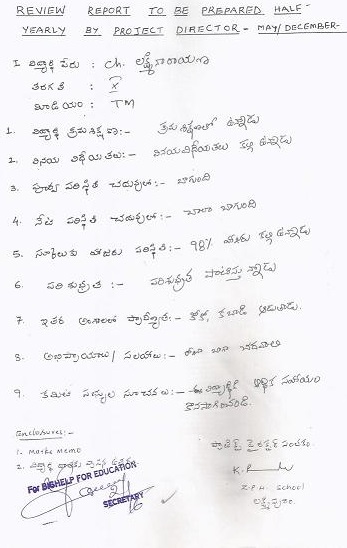 REVIEW REPORT TO BE PREPARED HALF-
YEARLY BY PROJECT DIRECTOR - MAY/DECEMBER-
I విద్యార్థి పేరు : Ch. లక్ష్మీనారాయణ
తరగతి : X
మీడియం : TM
1. విద్యార్థి క్రమశిక్షణ:- క్రమశిక్షణలో ఉన్నాడు
2. వినయ విధేయతలు:- వినయవిధేయతలు కల్గి ఉన్నాడు
3. పూర్వ పరిస్థితి చదువులో:- బాగుంది
4. నేటి పరిస్థితి చదువులో:- చాలా బాగుంది
5. స్కూలుకు హాజరు పరిస్థితి:- 98% హాజరు కల్గి ఉన్నాడు
6. పరిశుభ్రత :- పరిశుభ్రత పాటిస్తున్నాడు
7. ఇతర అంశాలలో ప్రావీణ్యత:- ఖోఖో, కబాడి ఆడుతాడు.
8. అభిప్రాయాలు/ సలహాలు:- బాగా చదవాలి
9. కమిటి సభ్యుల సూచనలు:- ఈ విద్యార్థికి ఆర్థిక సహాయం
కొనసాగించండి.
Enclosures:-
1. Marks Memo
2. విద్యార్థి
ప్రాజెక్ట్ డైరెక్టర్ సంతకం.
For BIGHELP FOR EDUCATION
SECRETARY
Z.P.H. School